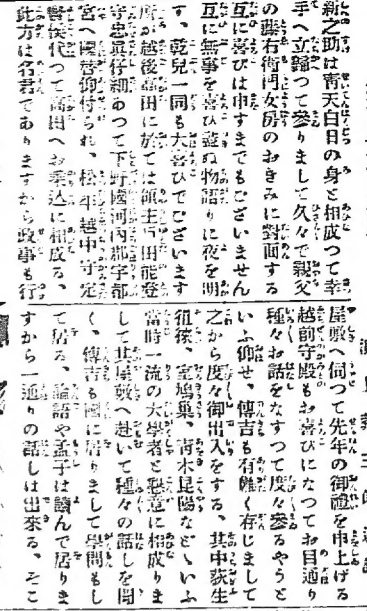 新之助は靑天白日の身と相成つて幸
手へ立歸つて參りまして久々で親父
の藤右衛門女房のおきみに對面する
互に喜びは申すまでもございません
互に無事を喜び盡ぬ物語りに夜を明
す、乾兒一同も大喜びでございます
所が越後高田に於ては領主戸田能登
守忠眞仔細あつて下野國河內郡宇都
宮へ國替仰付られ、松平越中守定
賢侯代つて高田へお乘込に相成る、
此方は名君でありますから政事も行
屋敷へ伺つて先年の御禮を申上げる
越前守殿もお喜びになつてお目通り
種々お話をなすつて度々參るやうと
いふ仰せ、傳吉も有難く存じまして
之から度々御出入をする、其中荻生
徂徠、室鳩巢、靑木昆陽などゝいふ
當時一流の大學者と懇意に相成りま
して其屋敷へ赴いて種々の話しを聞
く、傳吉も國に居りまして學問もし
て居る、論語や孟子は讀んで居りま
すから一通りの話しは出來る、そこ